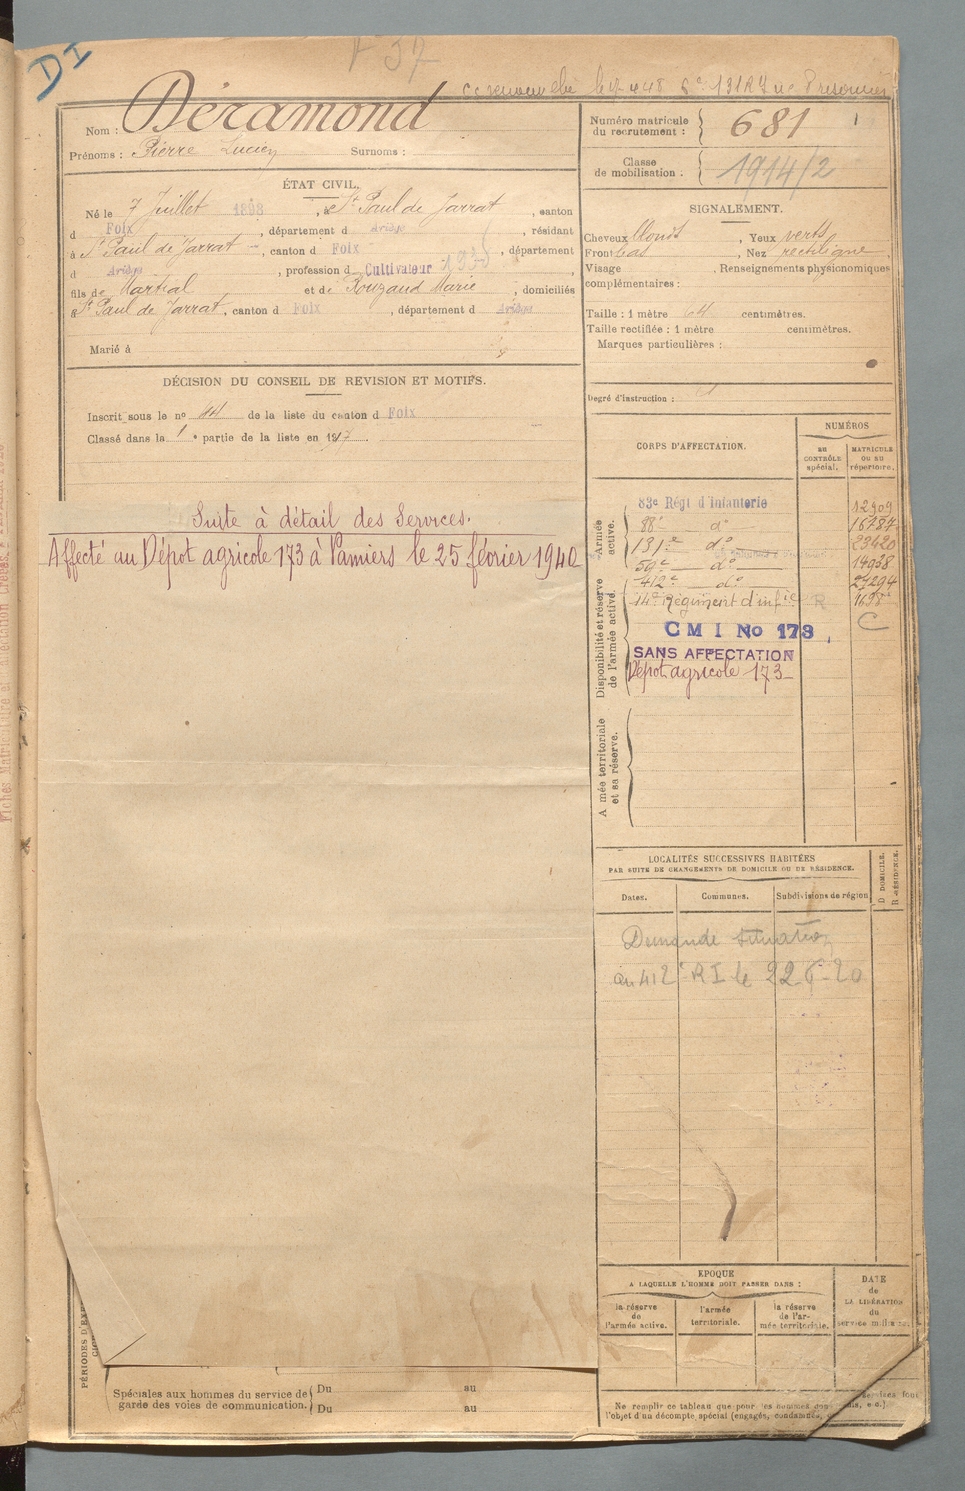 DI
Nom : Déramond
Prénoms : Pierre Lucien Surnoms :
Numéro matricule du recrutement : 681
Classe de mobilisation : 1914/2
ÉTAT CIVIL.
Né le 7 Juillet 1898, à St Paul de Jarrat, canton
d Foix, département d Ariège, résidant
à St Paul de Jarrat, canton d Foix, département
d Ariège, profession d Cultivateur
fils de Martial et de Rouzaud Marie, domiciliés
à St Paul de Jarrat, canton d Foix, département d Ariège
Marié à
SIGNALEMENT.
Cheveux blonds, Yeux verts
Front bas, Nez rectiligne
Visage , Renseignements physionomiques
complémentaires :
Taille : 1 mètre 64 centimètres.
Taille rectifiée : 1 mètre centimètres.
Marques particulières :
Degré d'instruction :
DÉCISION DU CONSEIL DE REVISION ET MOTIFS.
Inscrit sous le no 44 de la liste du canton d Foix
Classé dans la 1e partie de la liste en 1917.
Suite à détail des Services.
Affecté au Dépôt agricole 173 à Pamiers le 25 février 1940
CORPS D'AFFECTATION.
NUMÉROS
AU CONTRÔLE spécial.
MATRICULE OU AU répertoire.
Armée active.
83e Régt d'Infanterie 12909
88e do 16787
131e do 23420
59e do 14938
412e do
Disponibilité et réserve de l'armée active.
14e Régiment d'infie R
C M I No 173
SANS AFFECTATION
Dépot agricole 173
Armée territoriale et sa réserve.
LOCALITÉS SUCCESSIVES HABITÉES
PAR SUITE DE CHANGEMENTS DE DOMICILE OU DE RÉSIDENCE.
Dates. Communes. Subdivisions de région
D DOMICILE.
R RÉSIDENCE.
Demande situation
au 412e R I le 22 6-20
EPOQUE
A LAQUELLE L'HOMME DOIT PASSER DANS :
la réserve de l'armée active.
l'armée territoriale.
la réserve de l'armée territoriale.
DATE de LA LIBÉRATION du service militaire.
Spéciales aux hommes du service de garde des voies de communication.
Du au
Du au
Ne remplir ce tableau que pour les hommes
l'objet d'un décompte spécial (engagés, condamnés,